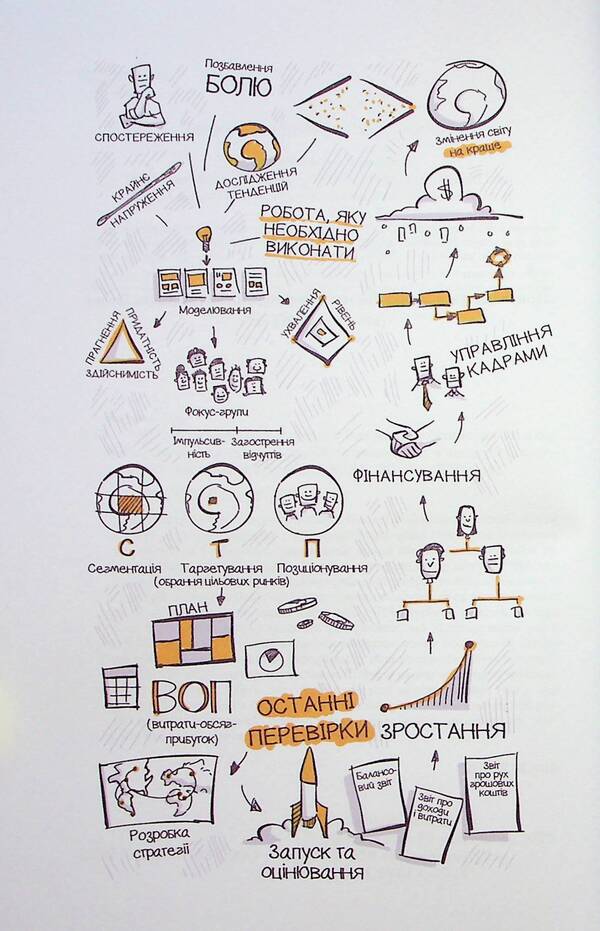 Позбавлення
БОЛЮ
СПОСТЕРЕЖЕННЯ
Змінення світу
на краще
ДОСЛІДЖЕННЯ
ТЕНДЕНЦІЙ
КРАЙНЄ
НАПРУЖЕННЯ
РОБОТА, ЯКУ
НЕОБХІДНО
ВИКОНАТИ
$
Моделювання
ПРАГНЕННЯ
ПРИДАТНІСТЬ
ЗДІЙСНИМІСТЬ
УХВАЛЕННЯ
РІВЕНЬ
УПРАВЛІННЯ
КАДРАМИ
Фокус-групи
Імпульсив-
ність
Загострення
відчуттів
ФІНАНСУВАННЯ
С
Т
П
Сегментація
Таргетування
(обрання цільових ринків)
Позиціонування
ПЛАН
ВОП
(витрати-обсяг-
прибуток)
ОСТАННІ
ПЕРЕВІРКИ
ЗРОСТАННЯ
Розробка
стратегії
Запуск та
оцінювання
Балансо-
вий звіт
Звіт про
доходи
і витрати
Звіт
про рух
грошових
коштів